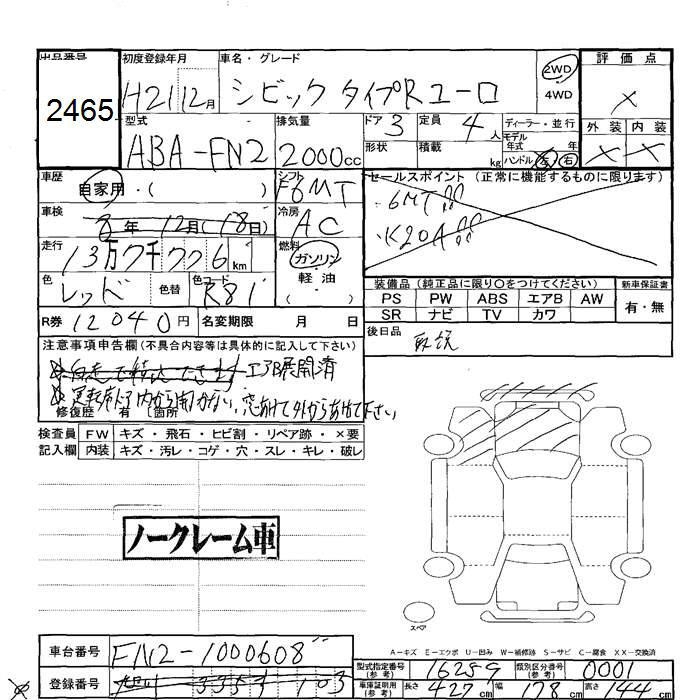 出品番号 初度登録年月 車名・グレード 2WD 評価点
2465 H21 12月 シビック タイプRユーロ 4WD ×
型式 排気量 ドア 3 定員 4人 ディーラー・並行 外装 内装
ABA-FN2 2000cc 形状 積載 kg モデル年式 年 × ×
ハンドル 左 右
車歴 シフト セールスポイント (正常に機能するものに限ります)
自家用・( ) F6MT ・6MT!!
車検 冷房 ・K20A!!
8年 12月(18日) AC
走行 燃料
13万7千776km ガソリン
色 色替 色コード 軽油 装備品 (純正品に限り○をつけてください) 新車保証書
レッド R81 ・( ) PS PW ABS エアB AW 有・無
R券 12040円 名変期限 月 日 SR ナビ TV カワ
注意事項申告欄 (不具合内容等は具体的に記入して下さい) 後日品 取説
※自走で積込できます エアB展開済
※運転席ドア内から開かない、窓あけて外からあけて下さい
修復歴 有 〔箇所
検査員 FW キズ・飛石・ヒビ割・リペア跡・×要
記入欄 内装 キズ・汚レ・コゲ・穴・スレ・キレ・破レ
ノークレーム車
スペア
A−キズ E−エクボ U−凹み W−補修跡 S−サビ C−腐食 XX−交換済
車台番号 FN2-1000608
登録番号 3353 103
型式指定番号(参考) 16259 類別区分番号(参考) 0001
車庫証明用(参考) 長さ 427cm 幅 178cm 高さ 144cm